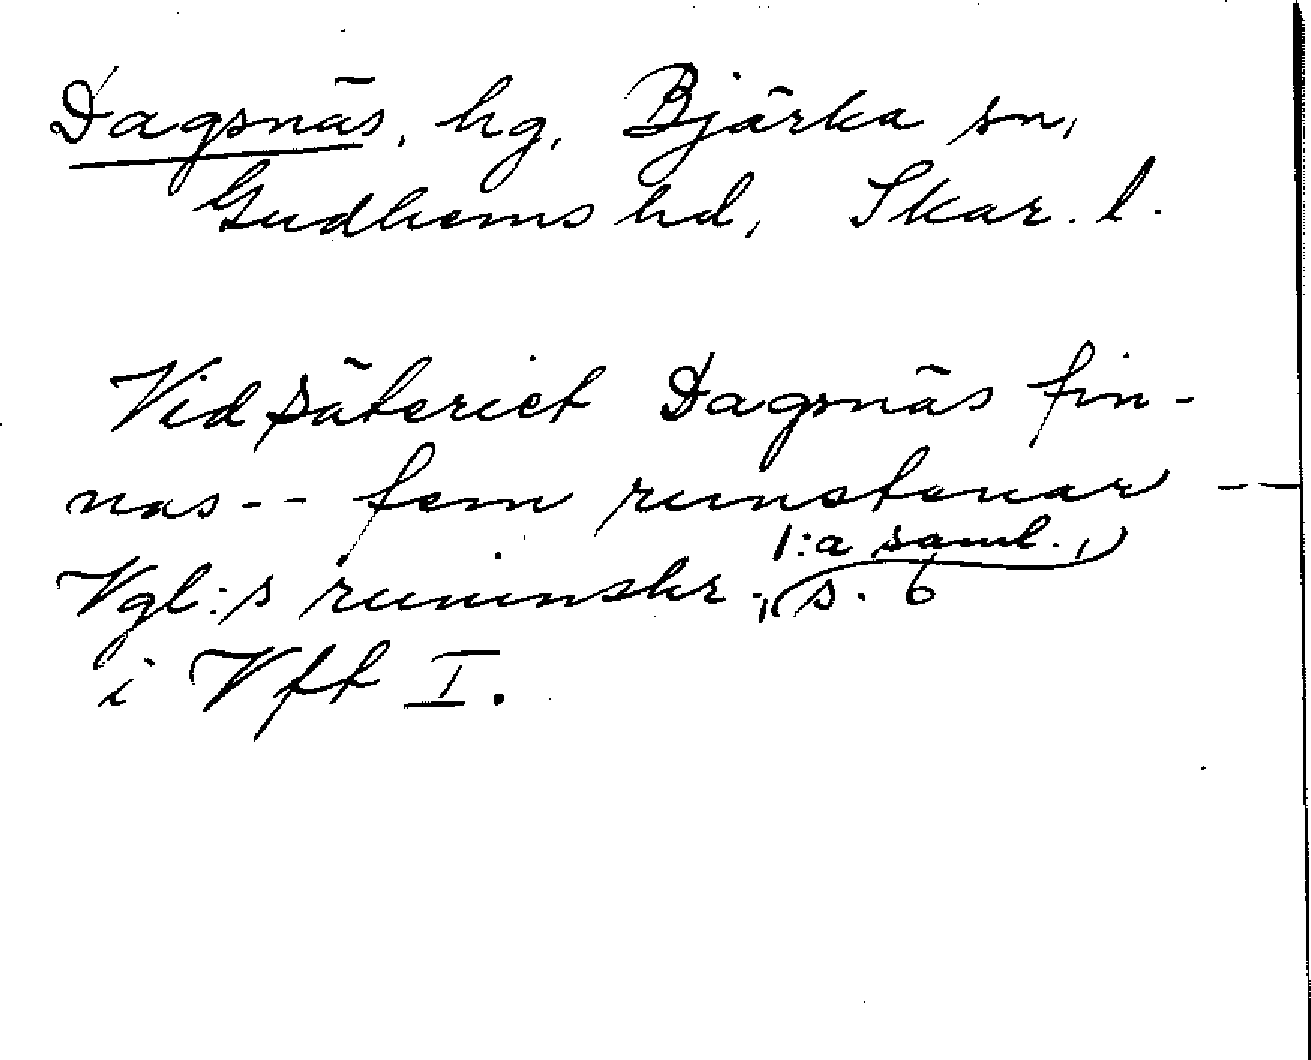 Dagsnäs, hg, Bjärka sn,
Gudhems hd, Skar. l.
Vid säteriet Dagsnäs fin-
nas -- fem runstenar --
1:a saml.,
Vgl:s runinskr., s. 6
i Vft I.